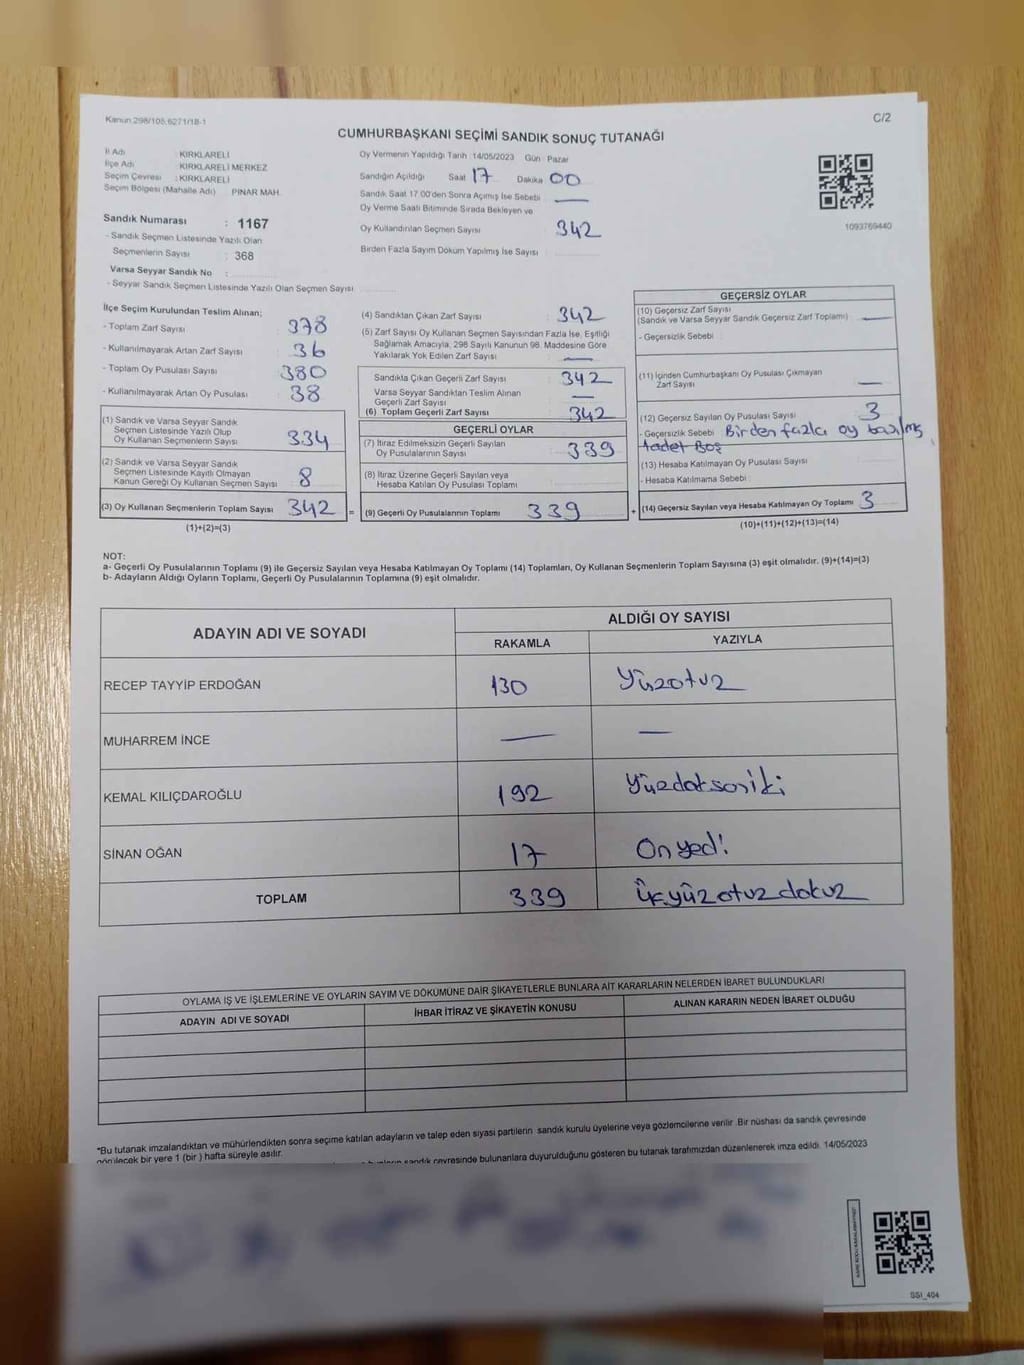 Kanun 298/105,6271/18-1
C/2
CUMHURBAŞKANI SEÇİMİ SANDIK SONUÇ TUTANAĞI
İl Adı : KIRKLARELİ
İlçe Adı : KIRKLARELİ MERKEZ
Seçim Çevresi : KIRKLARELİ
Seçim Bölgesi (Mahalle Adı) PINAR MAH.
Sandık Numarası : 1167
- Sandık Seçmen Listesinde Yazılı Olan
Seçmenlerin Sayısı : 368
Varsa Seyyar Sandık No :
- Seyyar Sandık Seçmen Listesinde Yazılı Olan Seçmen Sayısı
Oy Vermenin Yapıldığı Tarih 14/05/2023 Gün Pazar
Sandığın Açıldığı Saat 17 Dakika 00
Sandık Saat 17.00'den Sonra Açımış İse Sebebi —
Oy Verme Saati Bitiminde Sırada Bekleyen ve
Oy Kullandırılan Seçmen Sayısı 342
Birden Fazla Sayım Döküm Yapılmış İse Sayısı
1093769440
İlçe Seçim Kurulundan Teslim Alınan;
- Toplam Zarf Sayısı 378
- Kullanılmayarak Artan Zarf Sayısı 36
- Toplam Oy Pusulası Sayısı 380
- Kullanılmayarak Artan Oy Pusulası 38
(1) Sandık ve Varsa Seyyar Sandık
Seçmen Listesinde Yazılı Olup
Oy Kullanan Seçmenlerin Sayısı 334
(2) Sandık ve Varsa Seyyar Sandık
Seçmen Listesinde Kayıtlı Olmayan
Kanun Gereği Oy Kullanan Seçmen Sayısı 8
(3) Oy Kullanan Seçmenlerin Toplam Sayısı 342
(1)+(2)=(3)
(4) Sandıktan Çıkan Zarf Sayısı 342
(5) Zarf Sayısı Oy Kullanan Seçmen Sayısından Fazla İse, Eşitliği
Sağlamak Amacıyla, 298 Sayılı Kanunun 98. Maddesine Göre
Yakılarak Yok Edilen Zarf Sayısı —
Sandıkta Çıkan Geçerli Zarf Sayısı 342
Varsa Seyyar Sandıktan Teslim Alınan
Geçerli Zarf Sayısı —
(6) Toplam Geçerli Zarf Sayısı 342
GEÇERLİ OYLAR
(7) İtiraz Edilmeksizin Geçerli Sayılan
Oy Pusulalarının Sayısı 339
(8) İtiraz Üzerine Geçerli Sayılan veya
Hesaba Katılan Oy Pusulası Toplamı
= (9) Geçerli Oy Pusulalarının Toplamı 339
GEÇERSİZ OYLAR
(10) Geçersiz Zarf Sayısı
(Sandık ve Varsa Seyyar Sandık Geçersiz Zarf Toplamı) —
- Geçersizlik Sebebi
(11) İçinden Cumhurbaşkanı Oy Pusulası Çıkmayan
Zarf Sayısı —
(12) Geçersiz Sayılan Oy Pusulası Sayısı 3
- Geçersizlik Sebebi Birden fazla oy basılmış
1 adet Boş
(13) Hesaba Katılmayan Oy Pusulası Sayısı
- Hesaba Katılmama Sebebi
+ (14) Geçersiz Sayılan veya Hesaba Katılmayan Oy Toplamı 3
(10)+(11)+(12)+(13)=(14)
NOT:
a- Geçerli Oy Pusulalarının Toplamı (9) ile Geçersiz Sayılan veya Hesaba Katılmayan Oy Toplamı (14) Toplamları, Oy Kullanan Seçmenlerin Toplam Sayısına (3) eşit olmalıdır. (9)+(14)=(3)
b- Adayların Aldığı Oyların Toplamı, Geçerli Oy Pusulalarının Toplamına (9) eşit olmalıdır.
ADAYIN ADI VE SOYADI
ALDIĞI OY SAYISI
RAKAMLA YAZIYLA
RECEP TAYYİP ERDOĞAN 130 Yüzotuz
MUHARREM İNCE — —
KEMAL KILIÇDAROĞLU 192 Yüzdoksaniki
SİNAN OĞAN 17 Onyedi
TOPLAM 339 Üçyüzotuzdokuz
OYLAMA İŞ VE İŞLEMLERİNE VE OYLARIN SAYIM VE DÖKÜMÜNE DAİR ŞİKAYETLERLE BUNLARA AİT KARARLARIN NELERDEN İBARET BULUNDUKLARI
ADAYIN ADI VE SOYADI İHBAR İTİRAZ VE ŞİKAYETİN KONUSU ALINAN KARARIN NEDEN İBARET OLDUĞU
*Bu tutanak imzalandıktan ve mühürlendikten sonra seçime katılan adayların ve talep eden siyasi partilerin sandık kurulu üyelerine veya gözlemcilerine verilir .Bir nüshası da sandık çevresinde
görülecek bir yere 1 (bir ) hafta süreyle asılır.
sandık çevresinde bulunanlara duyurulduğunu gösteren bu tutanak tarafımızdan düzenlenerek imza edildi. 14/05/2023
SSI_404